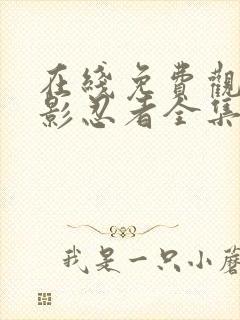 在綫免費觀
影忍者全集
我是一只小蘑